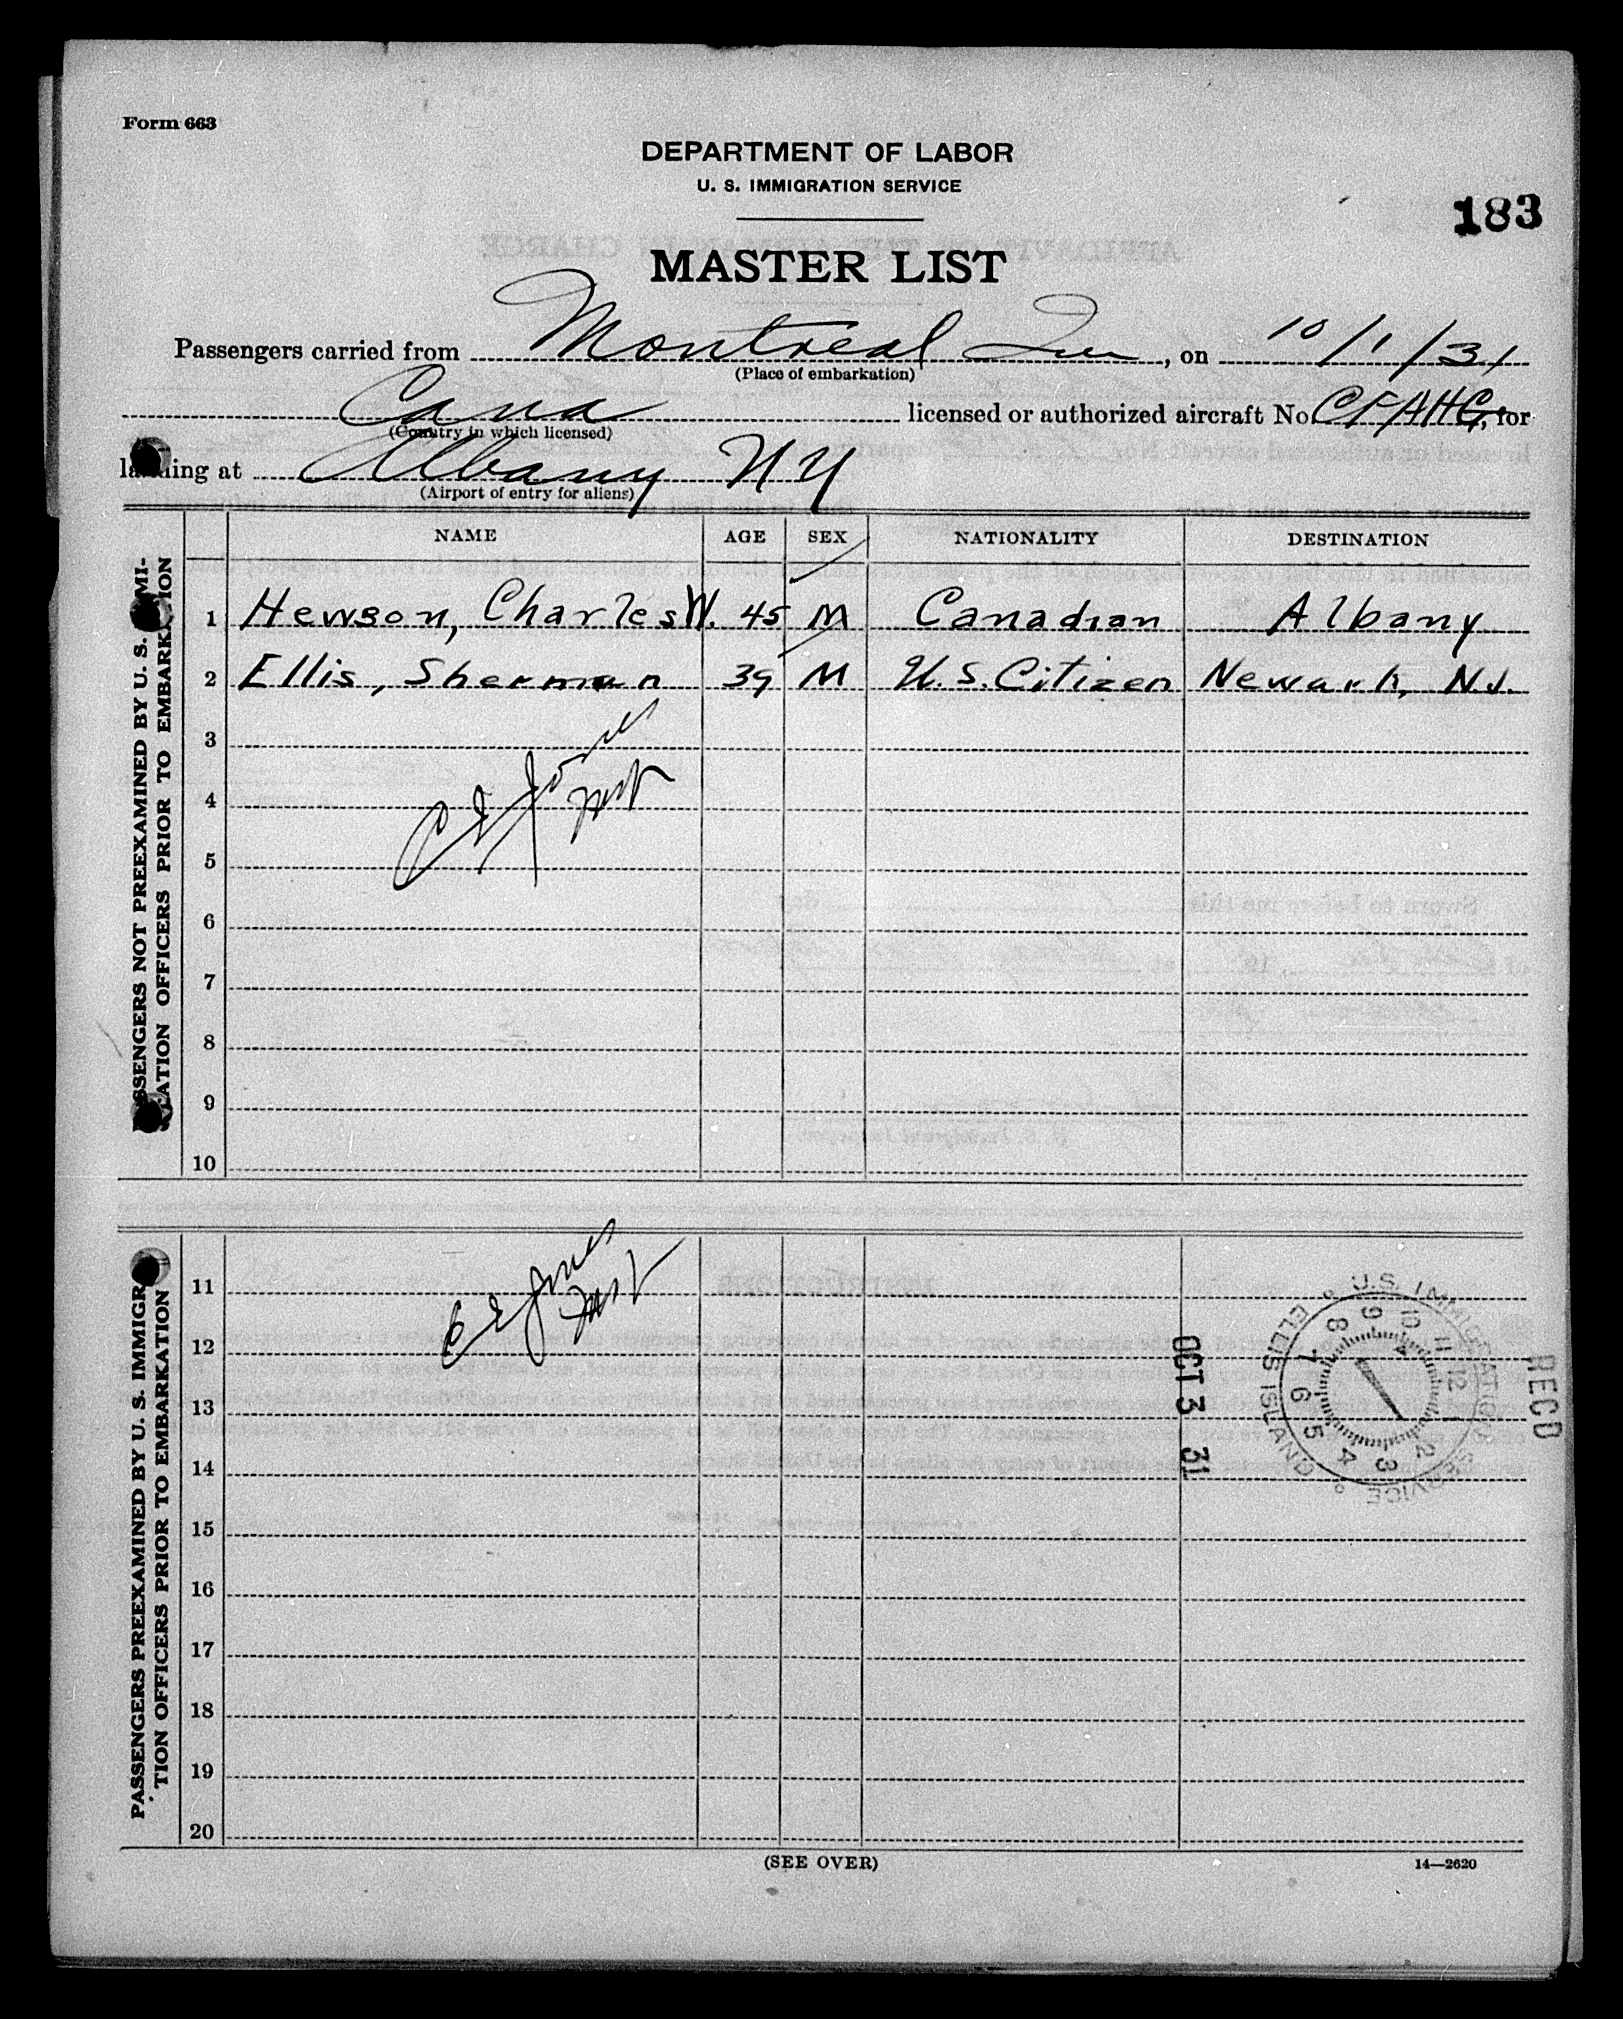 Form 663
DEPARTMENT OF LABOR
U. S. IMMIGRATION SERVICE
183
MASTER LIST
Passengers carried from Montreal Que, on 10/1/31
(Place of embarkation)
Cana licensed or authorized aircraft No. CF/AHG, for
(Country in which licensed)
landing at Albany NY
(Airport of entry for aliens)
NAME AGE SEX NATIONALITY DESTINATION
PASSENGERS NOT PREEXAMINED BY U. S. IMMI-
GRATION OFFICERS PRIOR TO EMBARKATION
1 Hewson, Charles W. 45 M Canadian Albany
2 Ellis, Sherman 39 M U.S. Citizen Newark, N.J.
3
C E Jones
Insp
4
5
6
7
8
9
10
PASSENGERS PREEXAMINED BY U. S. IMMIGRA-
TION OFFICERS PRIOR TO EMBARKATION
C E Jones
Insp
11
12
13
14
15
16
17
18
19
20
U.S. IMMIGRATION SERVICE
ELLIS ISLAND
1 2 3 4 5 6 7 8 9 10 11 12
OCT 3 31
RECD
(SEE OVER)
14—2620